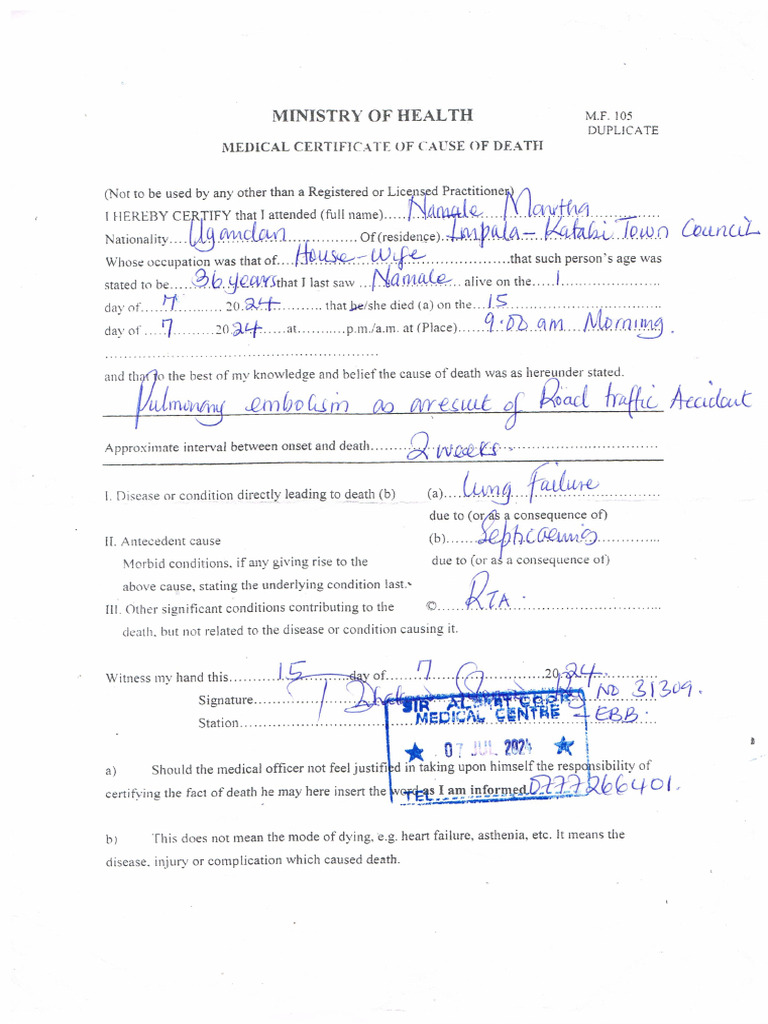 MINISTRY OF HEALTH
M.F. 105
DUPLICATE
MEDICAL CERTIFICATE OF CAUSE OF DEATH
(Not to be used by any other than a Registered or Licensed Practitioner)
I HEREBY CERTIFY that I attended (full name).....Namale Martha
Nationality....Ugandan Of (residence). Impala - Katabi Town Council
Whose occupation was that of....House-wife that such person's age was
stated to be.....36 years that I last saw ...Namale alive on the .....1
day of.....7 20.24 that he/she died (a) on the....15
day of ....7 20 24 at...........p.m./a.m. at (Place).....9:00 am Morning.
and that to the best of my knowledge and belief the cause of death was as hereunder stated.
Pulmonary embolism as aresult of Road traffic Accident
Approximate interval between onset and death.......2 weeks.
I. Disease or condition directly leading to death (b) (a)....Lung Failure
due to (or as a consequence of)
II. Antecedent cause (b)......Septicaemia
Morbid conditions, if any giving rise to the due to (or as a consequence of)
above cause, stating the underlying condition last.
III. Other significant conditions contributing to the ©.....RTA.
death, but not related to the disease or condition causing it.
Witness my hand this.........15 day of 7 2024
Signature NO 31309.
Station - EBB.
SIR ALBERT COOK
MEDICAL CENTRE
07 JUL 2024
TEL
a) Should the medical officer not feel justified in taking upon himself the responsibility of
certifying the fact of death he may here insert the word as I am informed. 0777266401.
b) This does not mean the mode of dying, e.g. heart failure, asthenia, etc. It means the
disease, injury or complication which caused death.